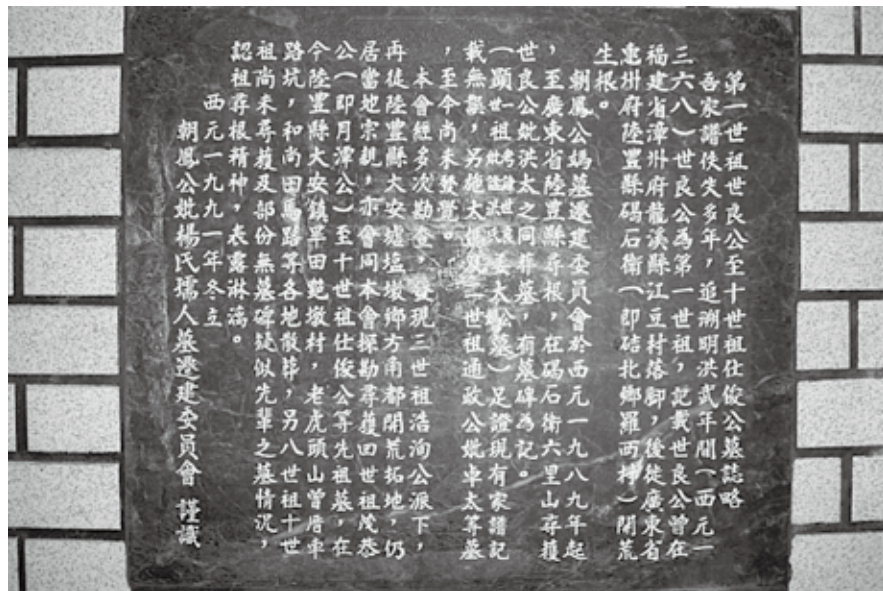 第一世祖世良公至十世祖仕俊公墓誌略
吾家譜佚失多年，追溯明洪武年間（西元一
三六八）世良公為第一世祖，記載世良公曾在
福建省漳州府龍溪縣江豆村落腳，後徙廣東省
惠州府陸豐縣碣石衛（即碣北鄉羅西村）開荒
生根。
朝鳳公媽墓遷建委員會於西元一九八九年起
，至廣東省陸豐縣尋根，在碣石衛六里山尋獲
世良公妣洪太之同葬墓，有墓碑為記。
（顯一祖考諱世良姜大公墓）足證現有家譜記
載無誤，另施太媽及二世祖通政公妣卓太等墓
，至今尚未發覺。
本會經多次勘查，發現三世祖浩洵公派下，
再徙陸豐縣大安墟塩墩鄉方角都開荒拓地，仍
居當地宗親，亦會同本會探勘尋獲四世祖茂恭
公（即月潭公）至十世祖仕俊公等先祖墓，在
今陸豐縣大安鎮旱田甕墩村，老虎頭山曾厝車
路坑，和尚田馬路等各地散葬，另八世祖十世
祖尚未尋獲及部份無墓碑疑似先輩之墓情況，
認祖尋根精神，表露淋漓。
西元一九九一年冬立
朝鳳公妣楊氏孺人墓遷建委員會 謹識